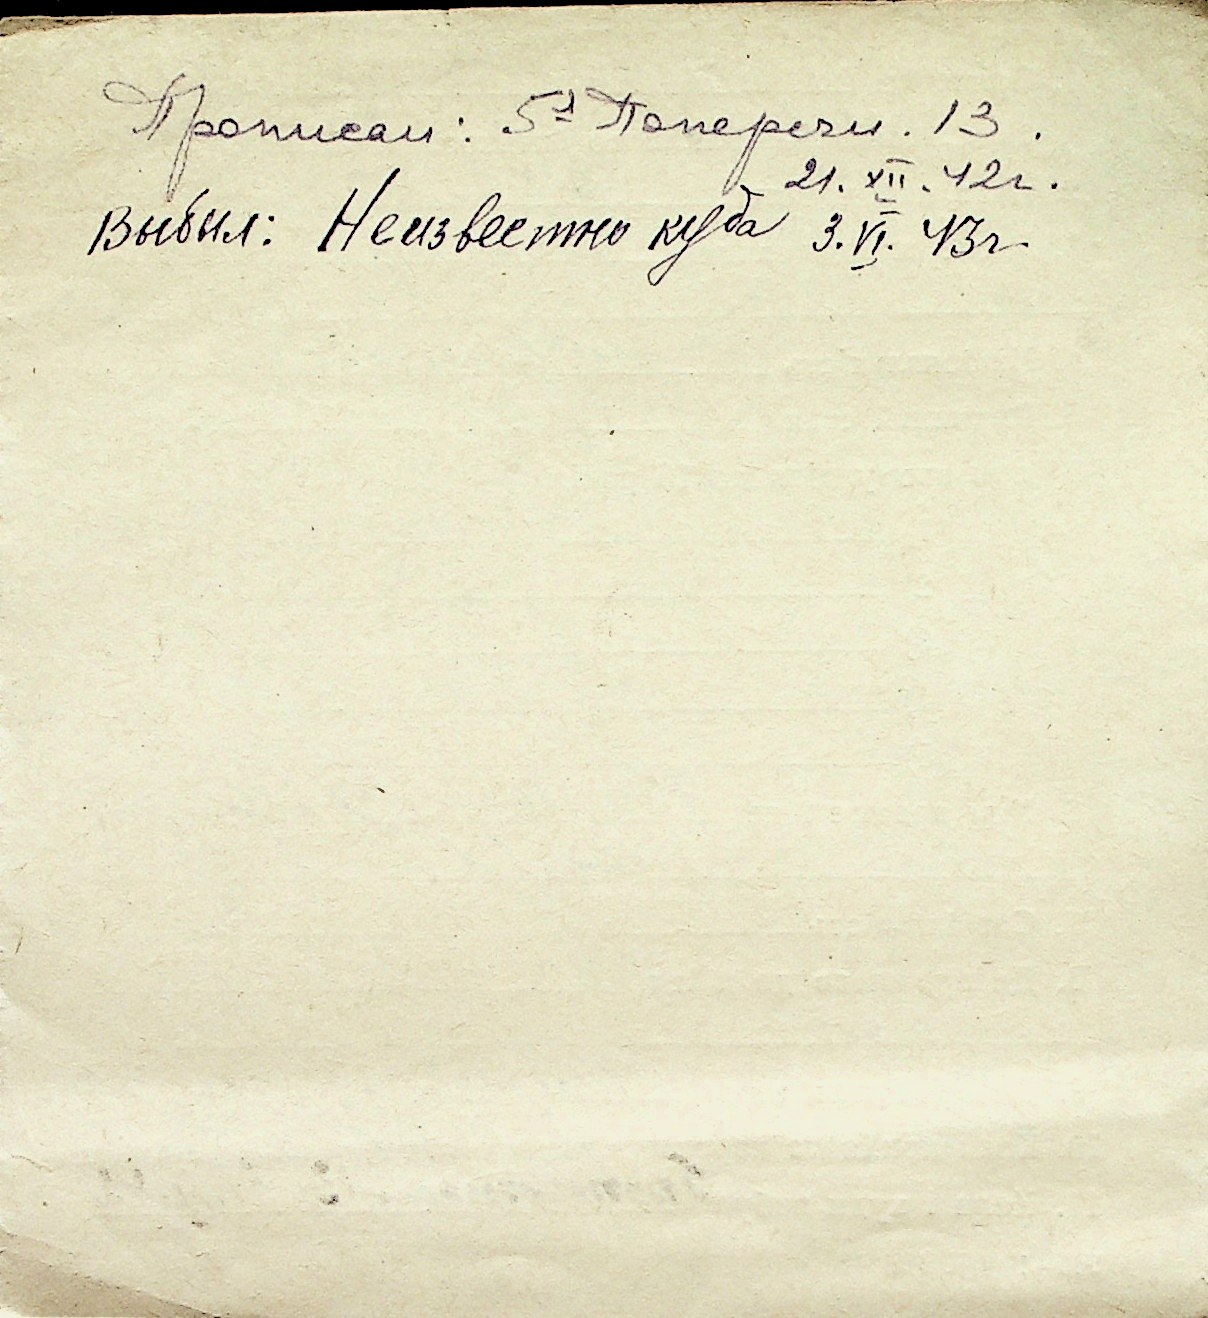 Прописан: 5я Попереч. 13.
21.XII.42г.
Выбыл: Неизвестно куда 3.VI.43г